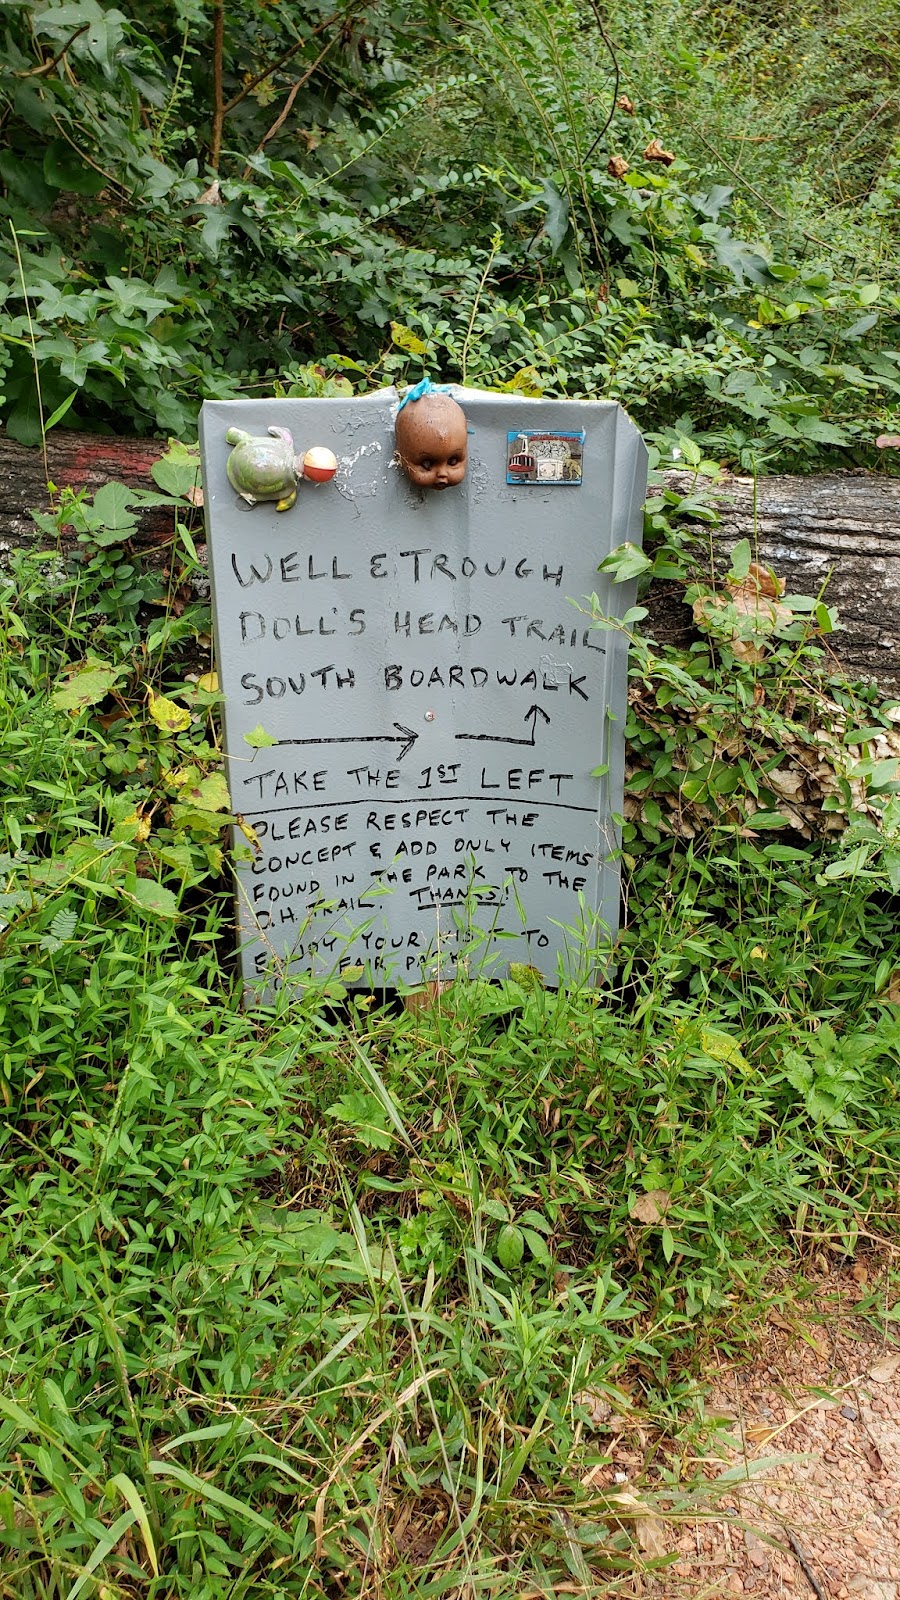 WELL & TROUGH
DOLL'S HEAD TRAIL
SOUTH BOARDWALK
TAKE THE 1ST LEFT
PLEASE RESPECT THE
CONCEPT & ADD ONLY ITEMS
FOUND IN THE PARK TO THE
D.H. TRAIL. THANKS!
ENJOY YOUR VISIT TO
FAIR PARK